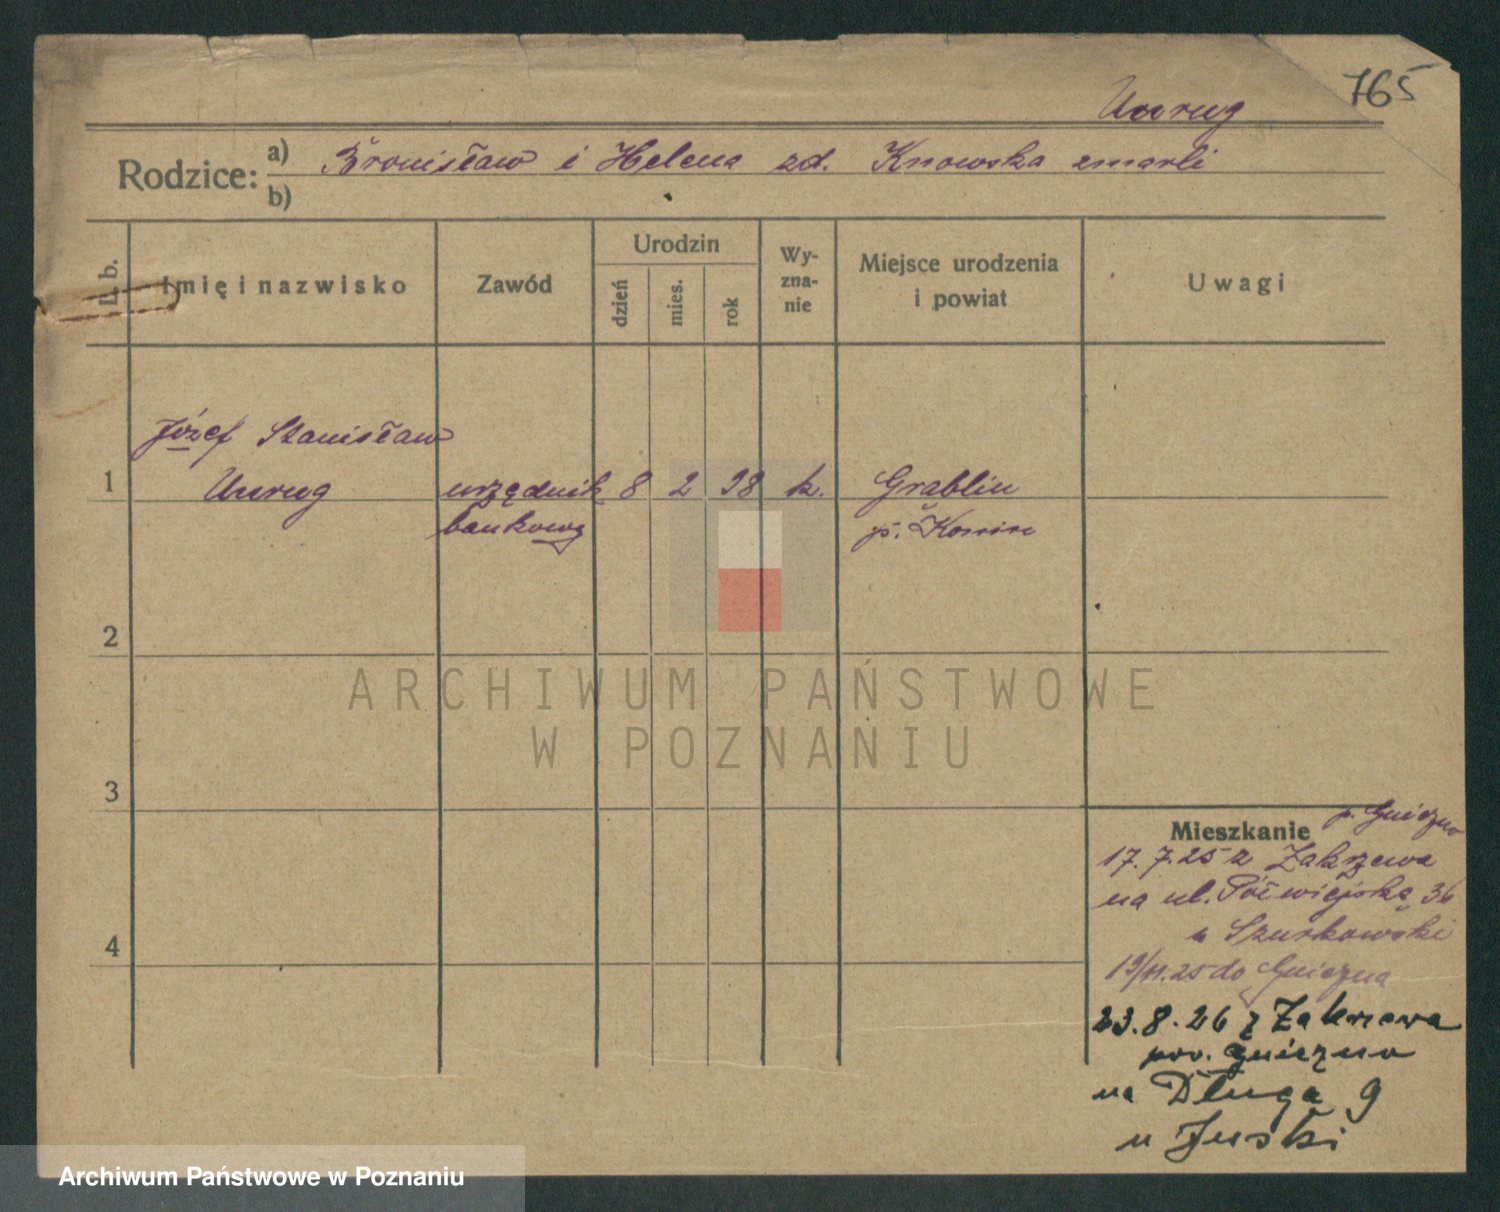 765
Unrug
Rodzice: a) Bronisław i Helena zd. zmarli
b)
L. b.
Imię i nazwisko
Zawód
Urodzin
dzień
mies.
rok
Wy-
zna-
nie
Miejsce urodzenia
i powiat
Uwagi
Józef Stanisław
1 Unrug urzędnik 8 2 98 k. Grablin
bankowy p. Konin
2
ARCHIWUM PAŃSTWOWE
W POZNANIU
3
Mieszkanie p. Gniezno
17.7.25 z Zakrzewa
na ul. Półwiejską 36
u Szurkowski
4
19/11.25 do Gniezna
23.8.26 z Zakrzewa
pow. Gniezno
na Długa 9
u
Archiwum Państwowe w Poznaniu